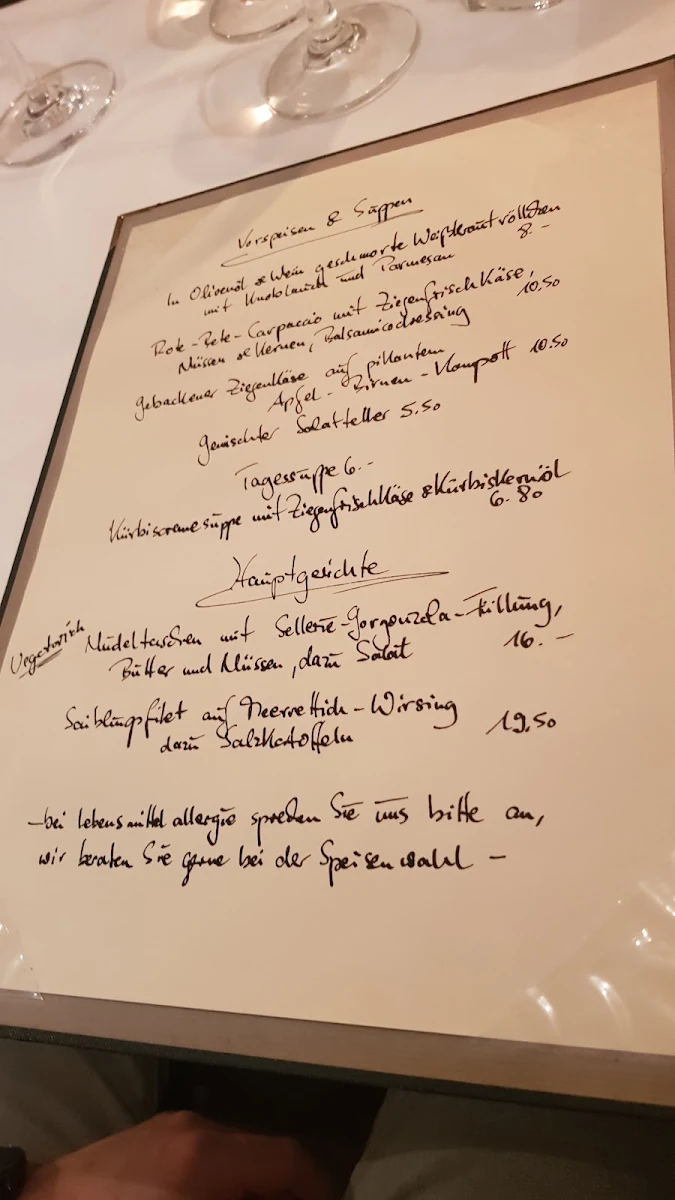 Vorspeisen & Suppen
In Olivenöl & Wein geschmorte Weißkrautröllchen
mit Knoblauch und Parmesan 8.-
Rote-Bete-Carpaccio mit Ziegenfrischkäse,
Nüssen & Kernen, Balsamicodressing 10.50
Gebackener Ziegenkäse auf pikantem
Apfel-Birnen-Kompott 10.50
Gemischter Salatteller 5.50
Tagessuppe 6.-
Kürbiscremesuppe mit Ziegenfrischkäse & Kürbiskernöl
6.80
Hauptgerichte
Vegetarisch Nudeltaschen mit Sellerie-Gorgonzola-Füllung,
Butter und Nüssen, dazu Salat 16.-
Saiblingsfilet auf Meerrettich-Wirsing
dazu Salzkartoffeln 19,50
-bei lebensmittelallergie sprechen Sie uns bitte an,
wir beraten Sie gerne bei der Speisenwahl -